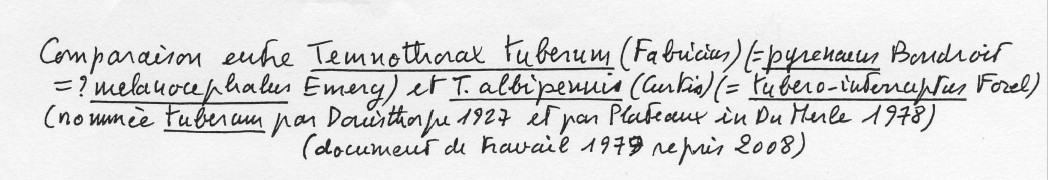 Comparaison entre Temnothorax tuberum (Fabricius) (=pyrenaeus Bondroit
=? melanocephalus Emery) et T. albipennis (Curtis) (= tubero-interruptus Forel)
(nommée tuberum par Donisthorpe 1927 et par Plateaux in Du Merle 1978)
(document de travail 1979 repris 2008)